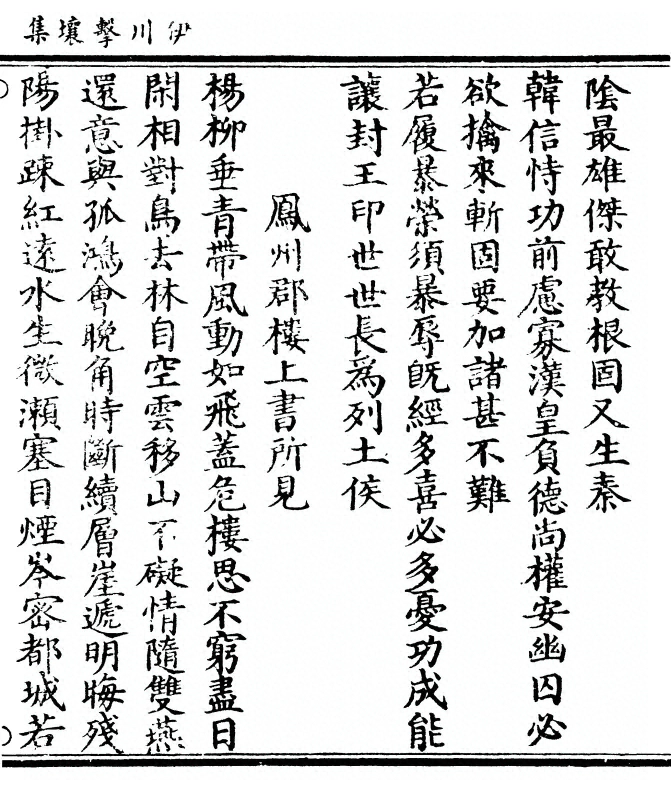 伊川擊壤集
陰最雄傑敢教根固又生秦
韓信恃功前慮寡漢皇負德尚權安幽囚必
欲擒來斬固要加諸甚不難
若履暴榮須暴辱旣經多喜必多憂功成能
讓封王印世世長爲列土侯
鳳州郡樓上書所見
楊柳垂青帶風動如飛蓋危樓思不窮盡日
閑相對鳥去林自空雲移山不礙情隨雙燕
還意與孤鴻會晩角時斷續層崖遞明晦殘
陽掛踈紅遠水生微瀨塞目煙岑密都城若